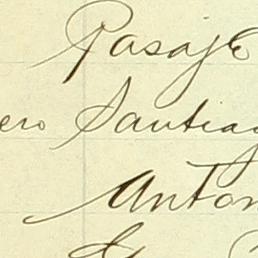 Pasaje
ero Santiag
Anton